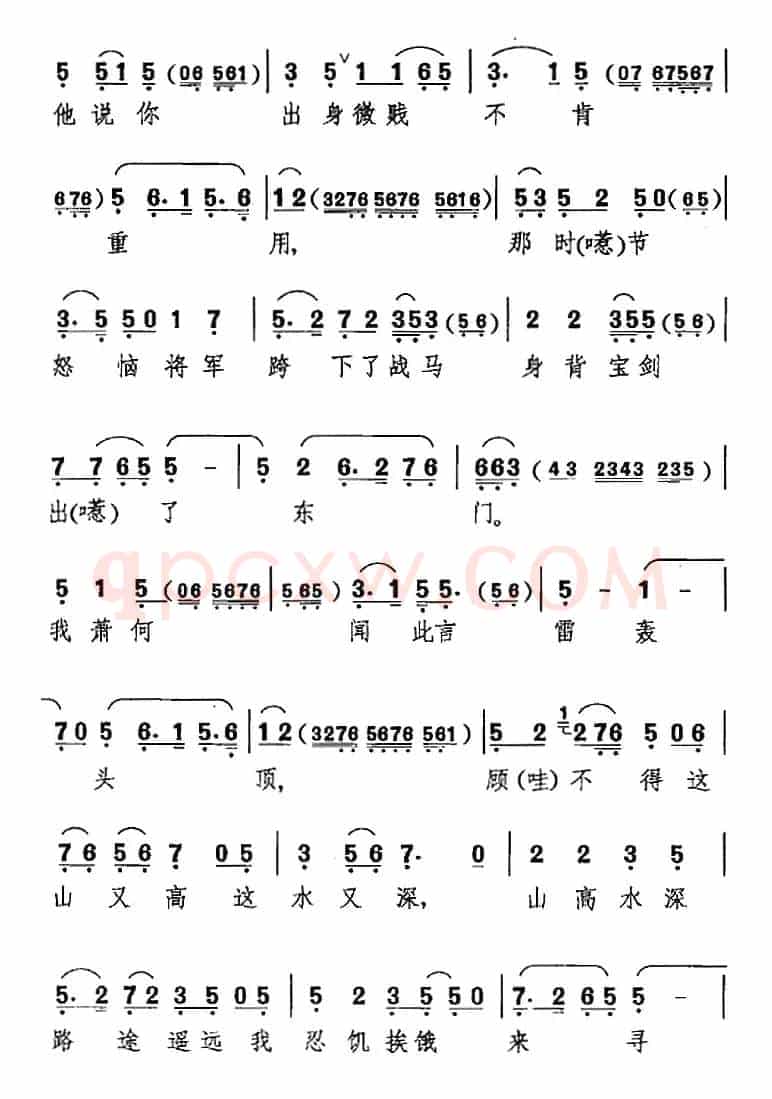 5 51 5 (06 561) | 3 5 ∨ 1 1 65 | 3· 1 5 (07 67567 |
他说你 出身微贱 不 肯
676) 5 6·1 5·6 | 12 (3276 5676 5616) | 53 5 2 50 (65) |
重 用, 那 时(噫)节
3·5 50 1 7 | 5·2 7 2 353 (56) | 2 2 355 (56) |
怒恼将军 跨下了战马 身背宝剑
7 765 5 - | 5 2 6·2 76 | 663 (43 2343 235) |
出(噫) 了 东 门。
qpcxw.COM
5 1 5 (06 5676 | 565) 3·1 55· (56) | 5 - 1 - |
我萧何 闻 此言 雷 轰
70 5 6·1 5·6 | 12 (3276 5676 561) | 5 2 1 276 506 |
头 顶, 顾(哇)不 得这
76 56 7 05 | 3 56 7· 0 | 2 2 3 5 |
山又高这 水又深, 山高水深
5·2 72 35 05 | 5 2 35 50 | 7·2 65 5 - |
路途遥远我 忍饥挨饿 来 寻